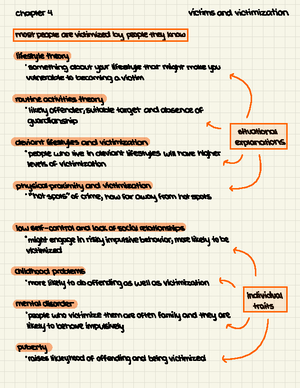 chapter 4
victims and victimization
most people are victimized by people they know
lifestyle theory
*something about your lifestyle that might make you
vulnerable to becoming a victim
routine activities theory
*likely offender, suitable target and absence of
guardianship
deviant lifestyles and victimization
*people who live in deviant lifestyles will have higher
levels of victimization
situational
explanations
physical proximity and victimization
*"hot spots" of crime, how far away from hot spots
low self-control and lack of social relationships
*might engage in risky impulsive behavior, more likely to be
victimized
childhood problems
*more likely to do offending as well as victimization
mental disorder
*people who victimize them are often family and they are
likely to behave impulsively
individual
traits
puberty
*raises likelyhead of offending and being victimized